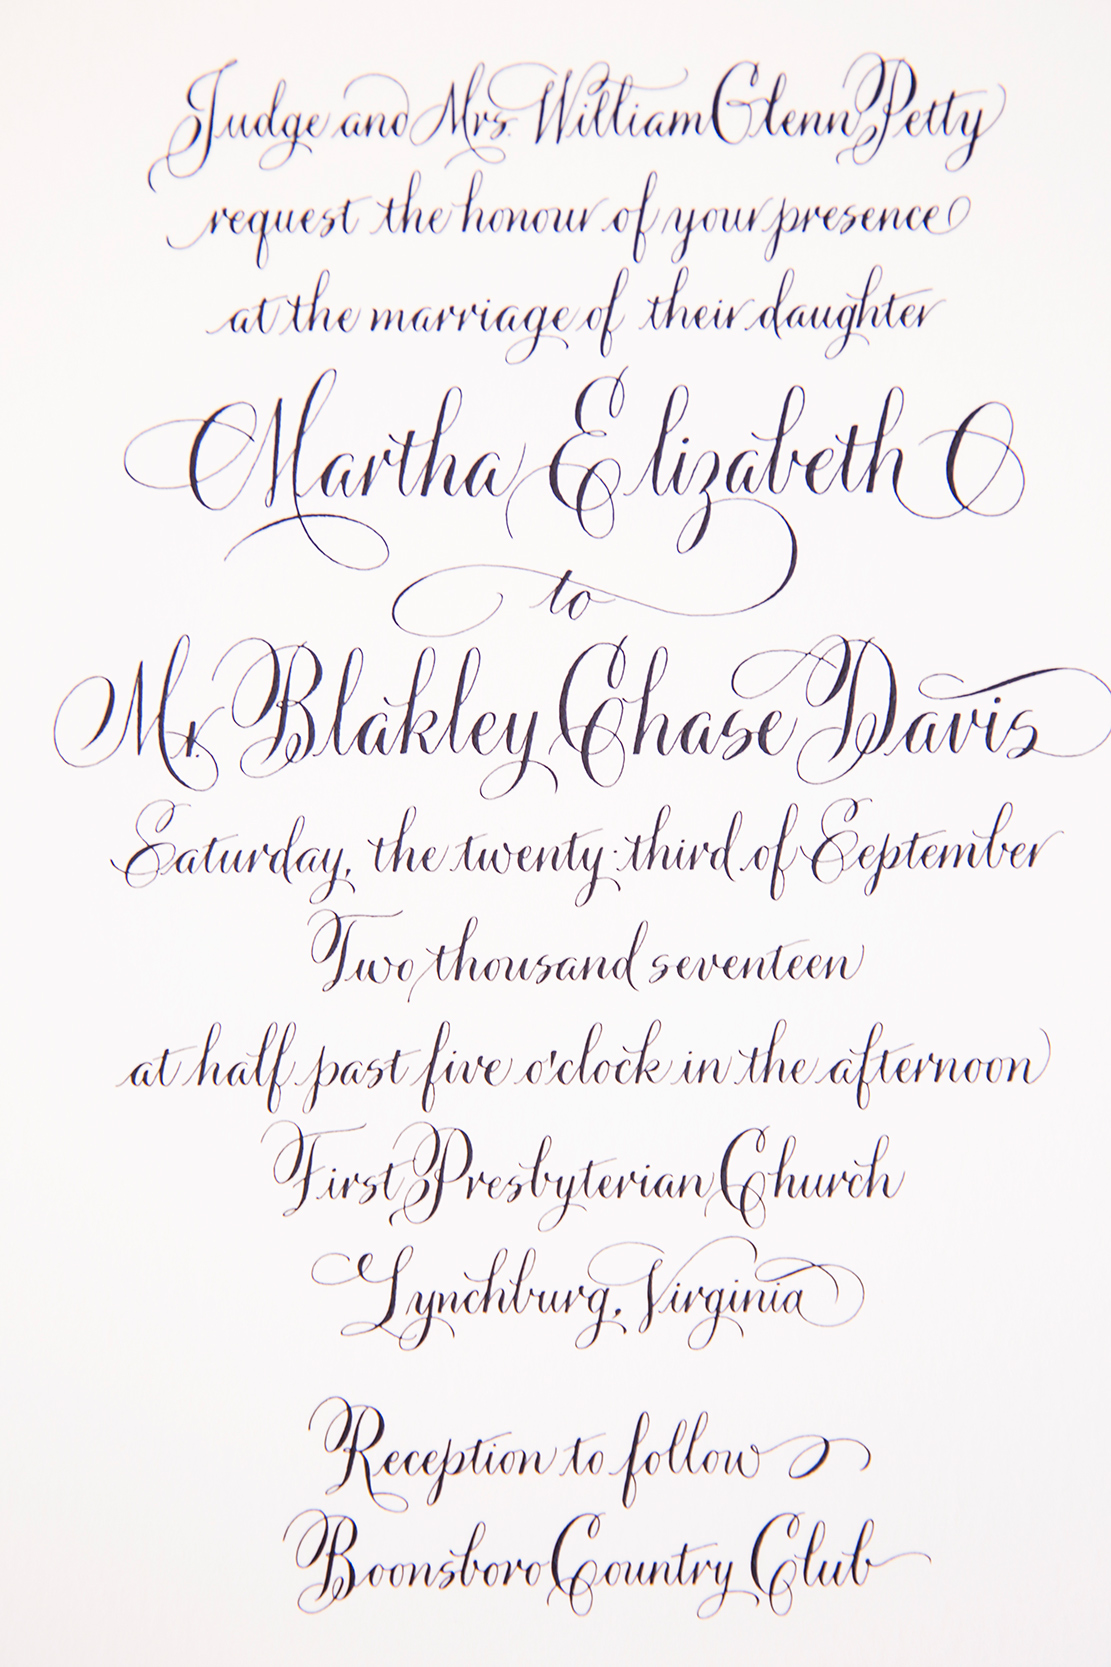 Judge and Mrs. William Glenn Petty
request the honour of your presence
at the marriage of their daughter
Martha Elizabeth
to
Mr. Blakley Chase Davis
Saturday, the twenty-third of September
Two thousand seventeen
at half past five o'clock in the afternoon
First Presbyterian Church
Lynchburg, Virginia
Reception to follow
Boonsboro Country Club